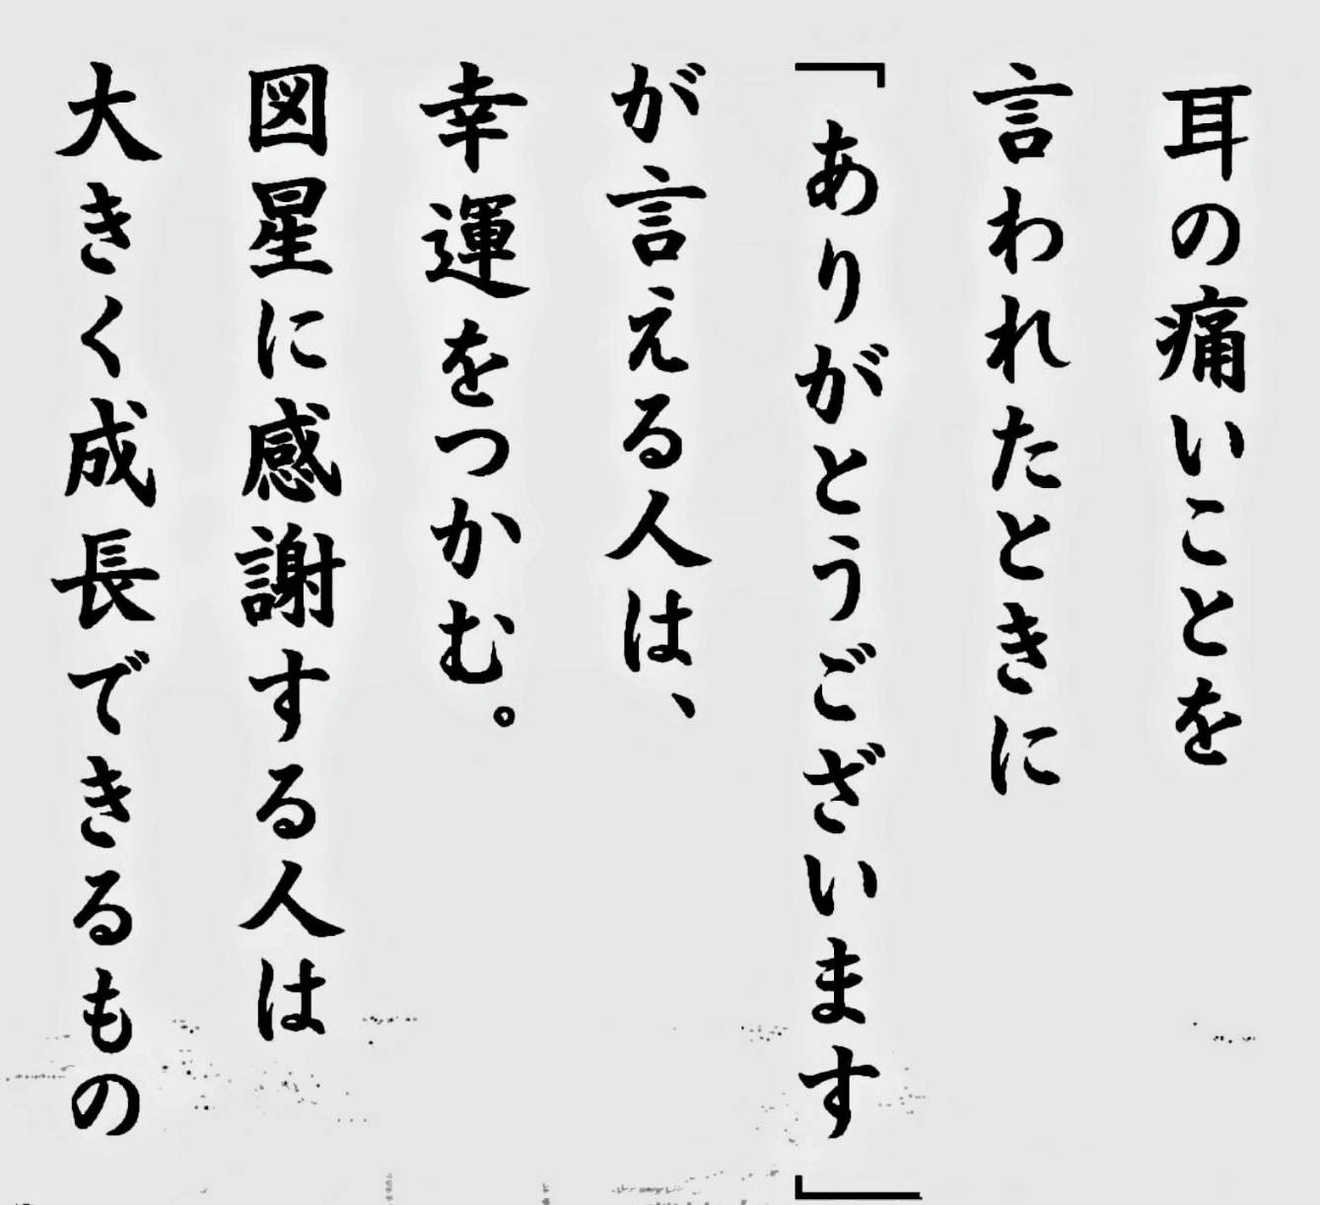 耳の痛いことを
言われたときに
「ありがとうございます」
が言える人は、
幸運をつかむ。
図星に感謝する人は
大きく成長できるもの